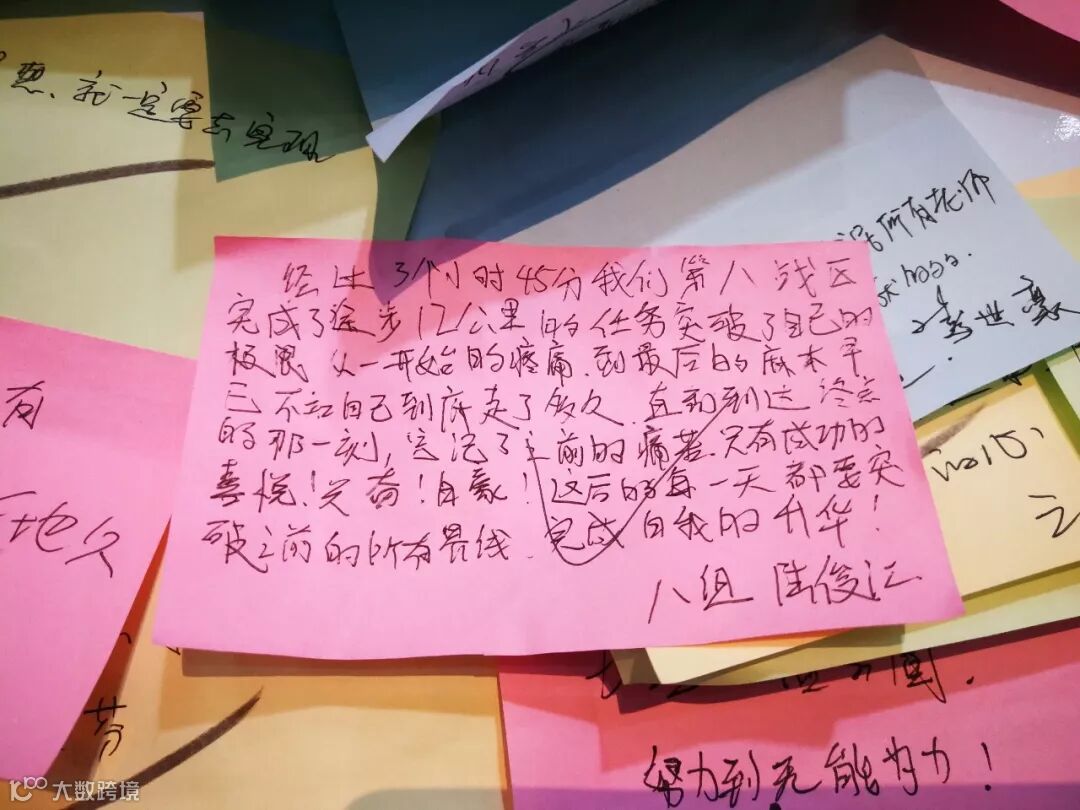 想、就一定要去实现
所有老师
李世襄
经过3个小时45分我们第八战区
完成了徒步12公里的任务突破了自己的
极限从一开始的疼痛、到最后的麻木早
已不知自己到底走了多久、直到到达终点
的那一刻，忘记了之前的痛苦、只有成功的
喜悦！兴奋！自豪！这后的每一天都要突
破之前的所有界线、完成自我的升华！
八组 陆俊江
有
地久
芬
努力到无能为力！
大数跨境